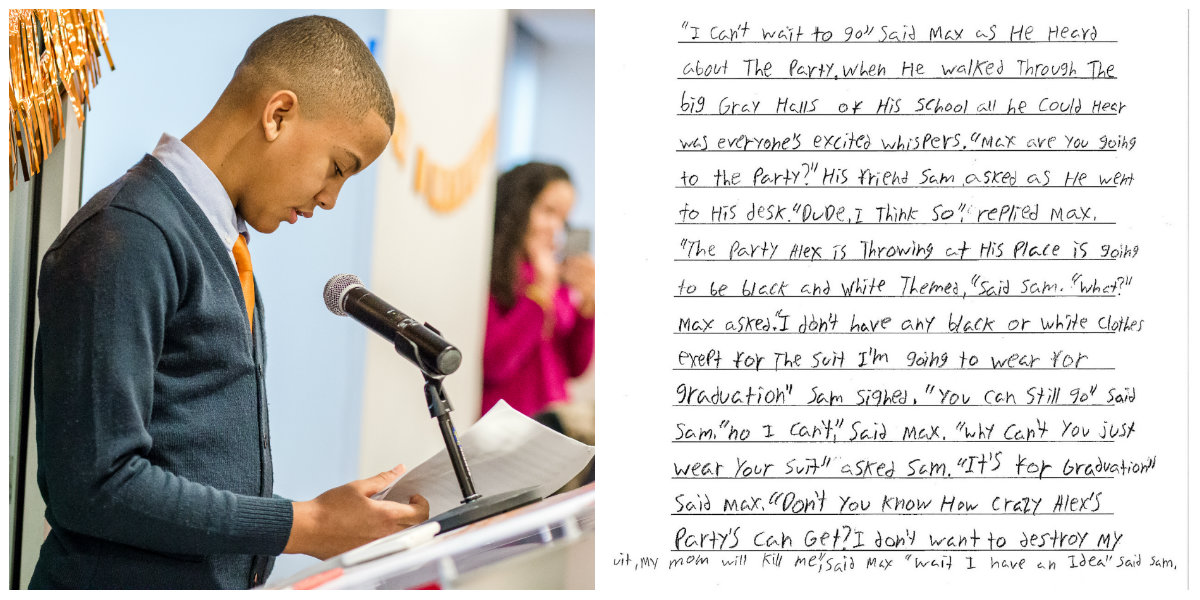 "I can't wait to go" Said Max as He Heard
about The Party. When He walked Through The
big Gray Halls of His School all he Could Hear
was everyone's excited whispers. "Max are You going
to the Party?" His friend Sam asked as He went
to His desk. "DuDe, I Think So", replied Max.
"The Party Alex is Throwing at His Place is going
to be black and white Themed," Said Sam. "What?"
Max asked. "I don't have any black or white Clothes
exept for The Suit I'm going to wear for
graduation" Sam Sighed. "You Can Still go" Said
Sam. "no I Can't," Said Max. "why Can't You just
wear Your Suit" asked Sam. "It's for Graduation"
Said Max. "Don't You Know How Crazy Alex's
Party's Can Get? I don't want to destroy My
uit, My mom will Kill me", Said Max "wait I have an Idea" Said Sam.